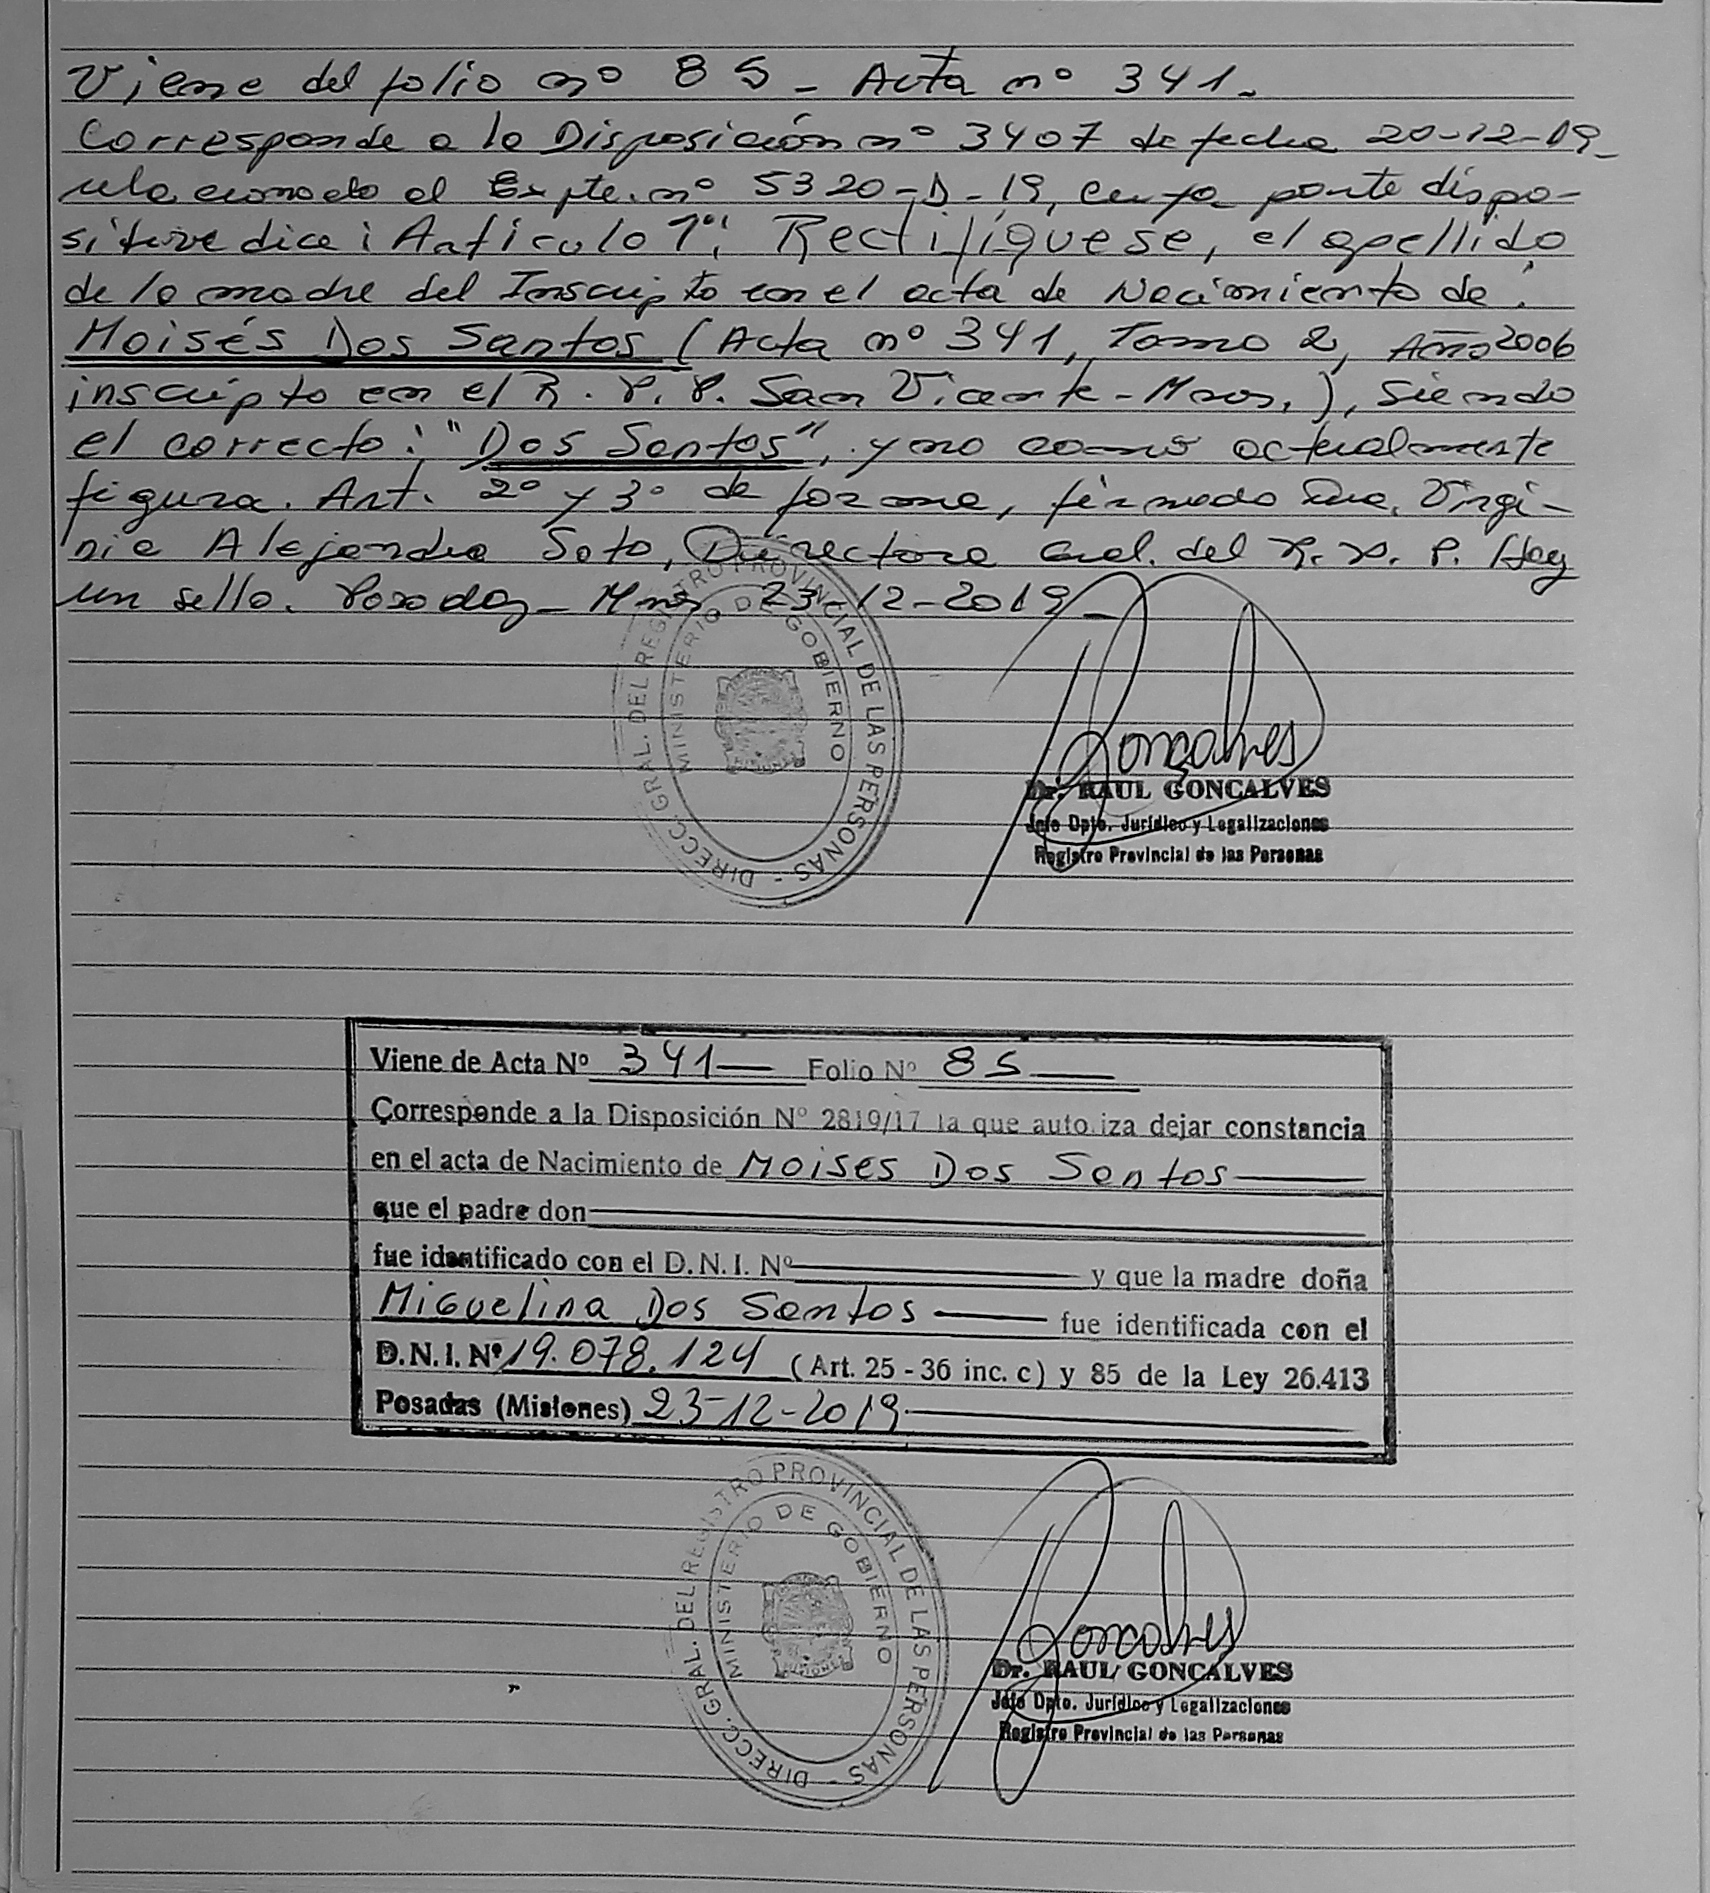 Viene del folio nº 85 - Acta nº 341.
Corresponde a la Disposición nº 3407 de fecha 20-12-19_
relacionado al Expte. nº 5320-D-19, cuya parte dispo-
sitiva dice: Artículo 1º: Rectifíquese, el apellido
de la madre del Inscripto en el acta de Nacimiento de:
Moisés Dos Santos (Acta nº 341, Tomo 2, Año 2006
inscripto en el R. P. P. San Vicente - Mnes.), siendo
el correcto: "Dos Santos", y no como actualmente
figura. Art. 2º y 3º de forma, firmado Dra. Virgi-
nia Alejandra Soto, Directora Gral. del R. P. P. Hay
un sello. Posadas - Mnes 23-12-2019_
DIRECC. GRAL. DEL REGISTRO PROVINCIAL DE LAS PERSONAS -
MINISTERIO DE GOBIERNO
Goncalves
Dr. RAUL GONCALVES
Jefe Dpto. Jurídico y Legalizaciones
Registro Provincial de las Personas
Viene de Acta Nº 341 Folio Nº 85
Corresponde a la Disposición Nº 2819/17 la que autoriza dejar constancia
en el acta de Nacimiento de Moises Dos Santos
que el padre don
fue identificado con el D.N.I. Nº y que la madre doña
Miguelina Dos Santos fue identificada con el
D.N.I. Nº 19.078.124 (Art. 25 - 36 inc. c) y 85 de la Ley 26.413
Posadas (Misiones) 23-12-2019
DIRECC. GRAL. DEL REGISTRO PROVINCIAL DE LAS PERSONAS -
MINISTERIO DE GOBIERNO
MISIONES
Goncalves
Dr. RAUL GONCALVES
Jefe Dpto. Jurídico y Legalizaciones
Registro Provincial de las Personas